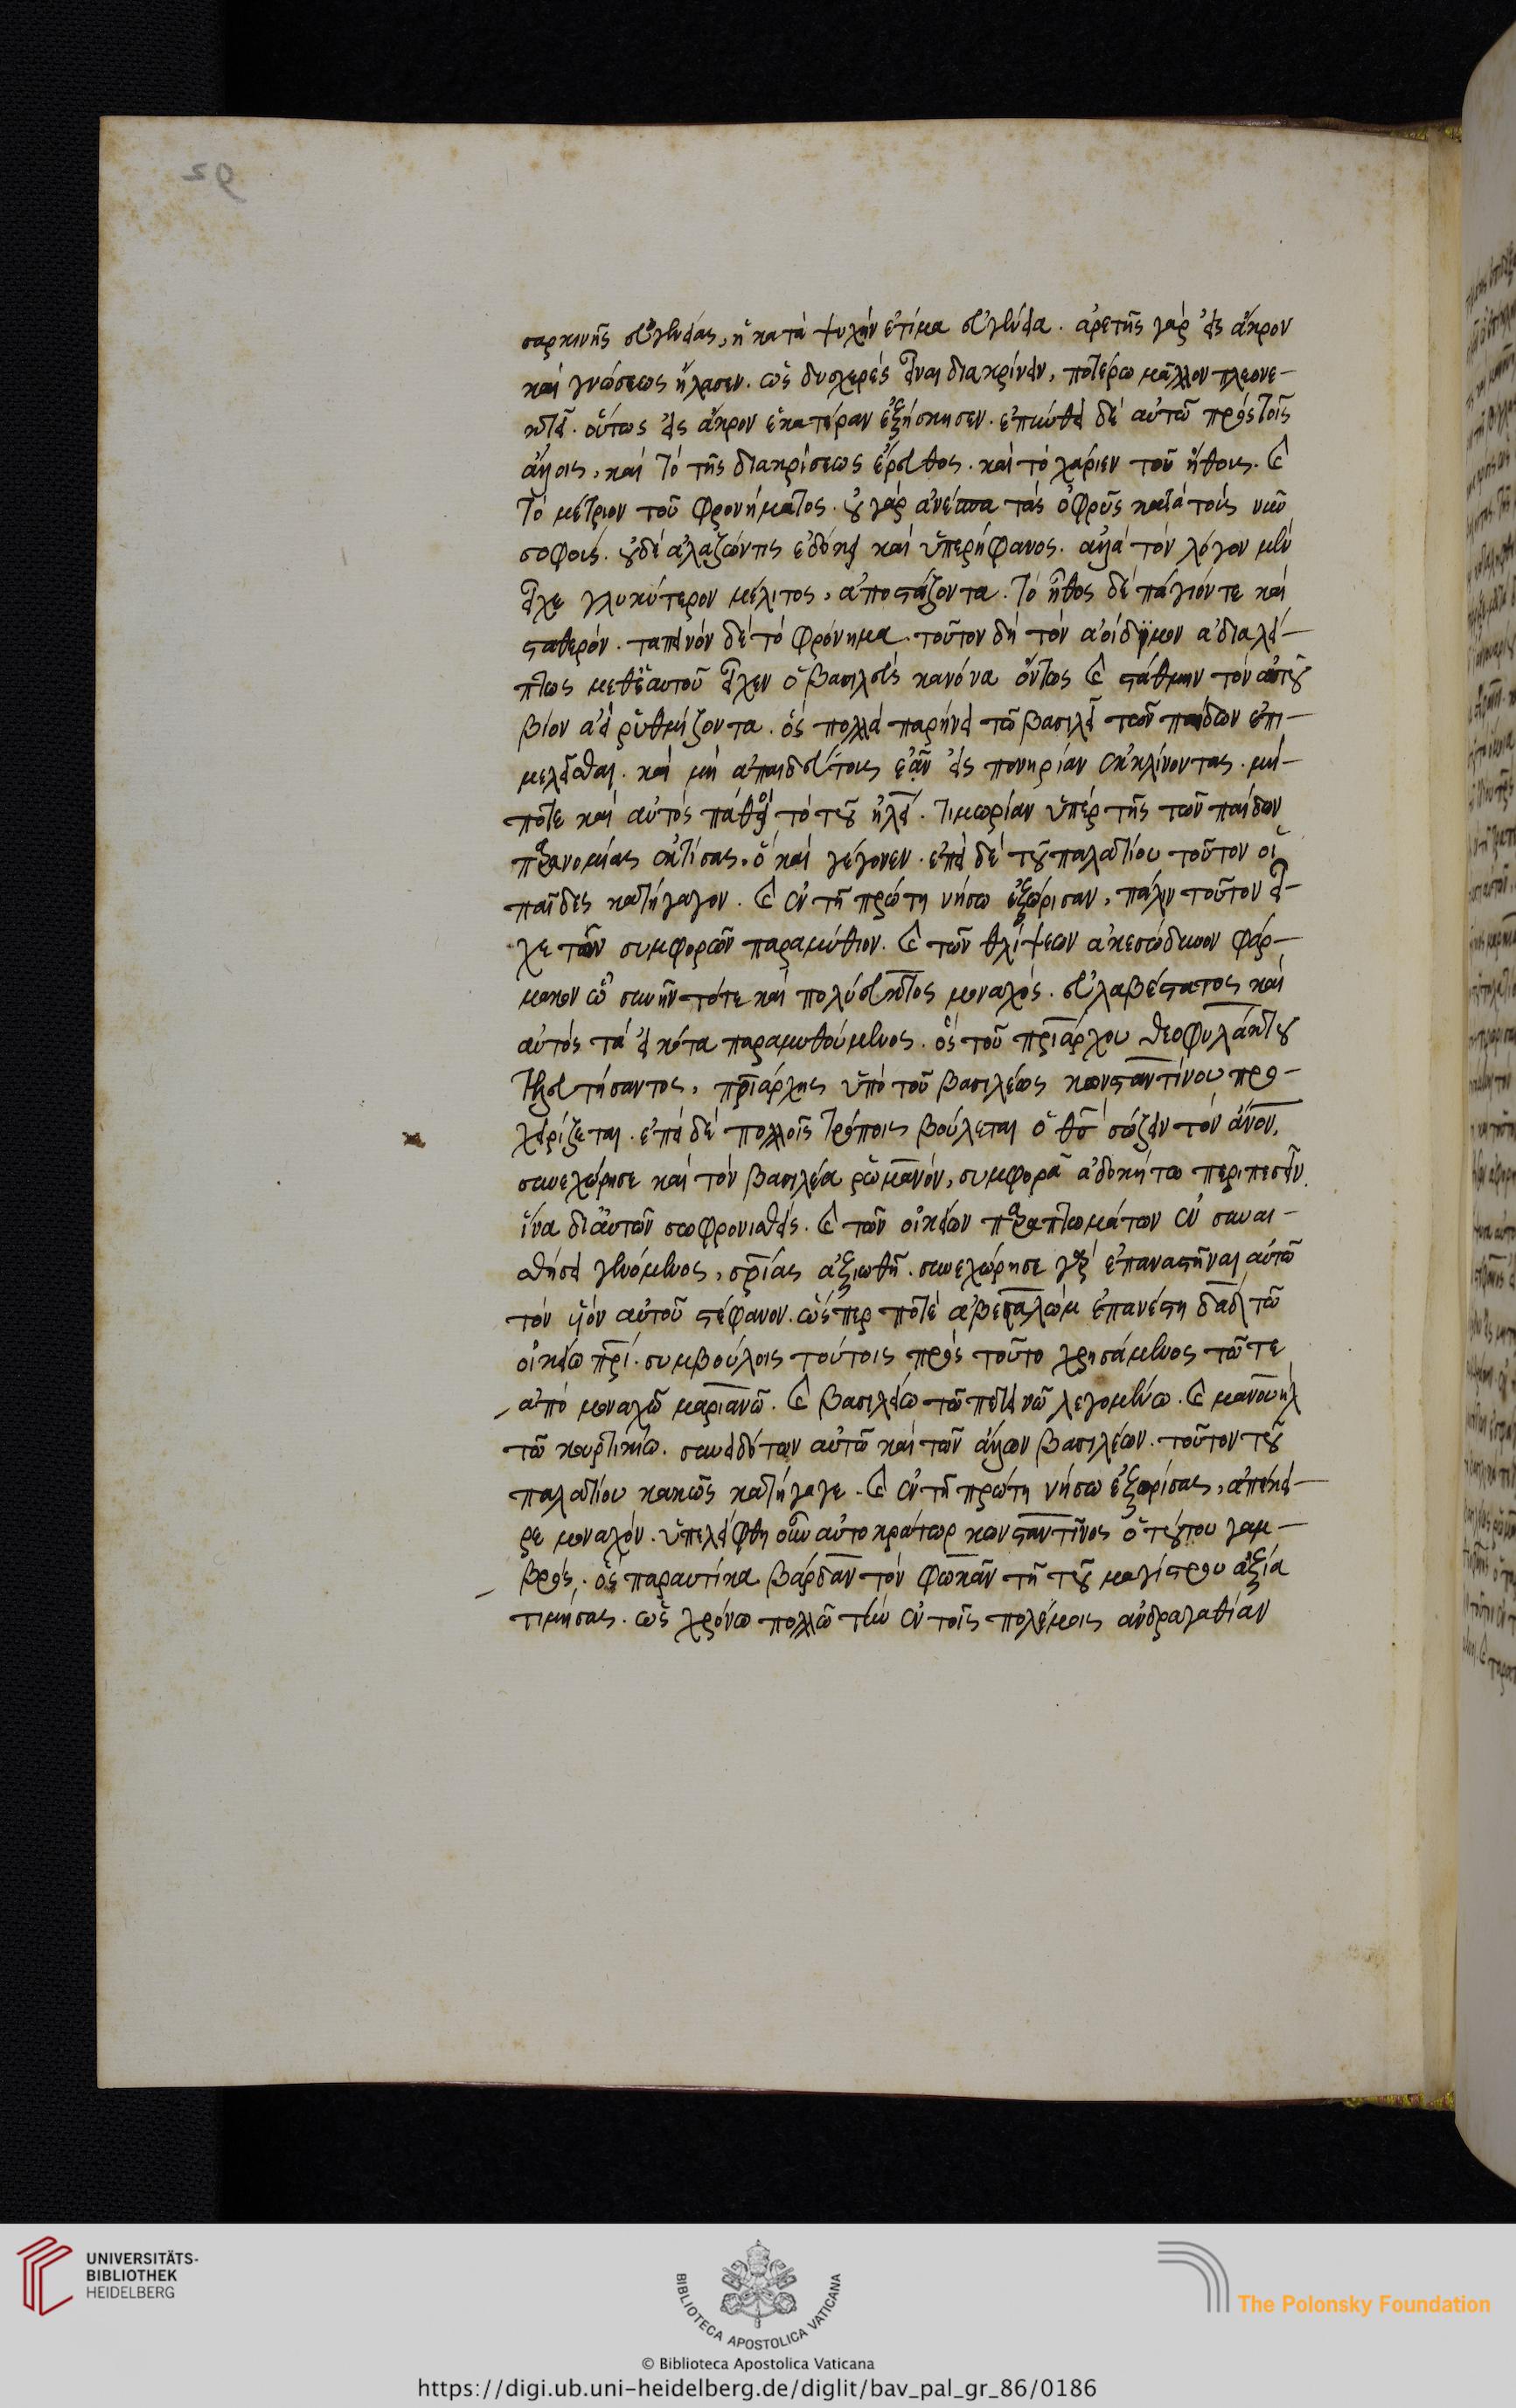 92
σαρκινῆς εὐγενείας, ἢ κατὰ ψυχὴν ἐτίμα εὐγένεια. ἀρετῆς γὰρ εἰς ἄκρον
καὶ γνώσεως ἤλασεν. ὡς δυσχερὲς εἶναι διακρίνειν, ποτέρω μᾶλλον πλεονε-
κτεῖ. οὕτως εἰς ἄκρον ἑκατέραν ἐξήσκησεν. ἐπήνθει δὲ αὐτῶ πρὸς τοῖς
ἄλλοις, καὶ τὸ τῆς διακρίσεως ἔρευθος. καὶ τὸ χάριεν τοῦ ἤθους. καὶ
τὸ μέτριον τοῦ φρονήματος. οὐ γὰρ ἀνέσπα τὰς ὀφρῦς κατὰ τοὺς νῦν
σοφούς. οὐδὲ ἀλαζών τις ἐδόκει καὶ ὑπερήφανος. ἀλλὰ τὸν λόγον μὲν
εἶχε γλυκύτερον μέλιτος, ἀποστάζοντα. τὸ ἦθος δὲ πάγιόν τε καὶ
σταθερόν. ταπεινὸν δὲ τὸ φρόνημα. τοῦτον δὴ τὸν ἀοίδιμον ἀδιαλεί-
πτως μεθ' ἑαυτοῦ εἶχεν ὁ βασιλεὺς κανόνα ὄντως καὶ στάθμην τὸν αὐτοῦ
βίον ἀεὶ ῥυθμίζοντα. ὃς πολλὰ παρήνει τῶ βασιλεῖ τῶν παίδων ἐπι-
μελεῖσθαι. καὶ μὴ ἀπαιδεύτους ἐᾶν εἰς πονηρίαν ἐκκλίνοντας. μή-
ποτε καὶ αὐτὸς πάθοι τὸ τοῦ ἠλεί. τιμωρίαν ὑπὲρ τῆς τῶν παίδων
παρανομίας ἐκτίσας. ὃ καὶ γέγονεν. ἐπεὶ δὲ τοῦ παλατίου τοῦτον οἱ
παῖδες κατήγαγον. καὶ ἐν τῆ πρώτη νήσω ἐξώρισαν, πάλιν τοῦτον εἶ-
χε τῶν συμφορῶν παραμύθιον. καὶ τῶν θλίψεων ἀκεσώδυνον φάρ-
μακον ὧ συνῆν τότε καὶ πολύευκτος μοναχός. εὐλαβέστατος καὶ
αὐτὸς τὰ εἰκότα παραμυθούμενος. ὃς τοῦ πριάρχου θεοφυλάκτου
τελευτήσαντος, πριάρχης ὑπὸ τοῦ βασιλέως κωνσταντίνου προ-
χειρίζεται. ἐπεὶ δὲ πολλοῖς τρόποις βούλεται ὁ θσ σώζειν τὸν ἄνον,
συνεχώρησε καὶ τὸν βασιλέα ῥωμανόν, συμφορᾶ ἀδοκήτω περιπεσεῖν.
ἵνα δι' αὐτῶν σωφρονισθείς. καὶ τῶν οἰκείων παραπτωμάτων ἐν συναι-
σθήσει γενόμενος, σρίας ἀξιωθῆ. συνεχώρησε γὰρ ἐπαναστῆναι αὐτῶ
τὸν υἱὸν αὐτοῦ στέφανον. ὥσπερ ποτὲ ἀβεσαλὼμ ἐπανέστη δαδ τῶ
οἰκείω πρί. συμβούλοις τούτοις πρὸς τοῦτο χρησάμενος τῶ τε
ἀπὸ μοναχῶ μαριανῶ. καὶ βασιλείω τῶ πετεινῶ λεγομένω. καὶ μανουὴλ
τῶ κουρτικίω. συνειδότων αὐτῶ καὶ τῶν ἄλλων βασιλέων. τοῦτον τοῦ
παλατίου κακῶς κατήγαγε. καὶ ἐν τῆ πρώτη νήσω ἐξορίσας, ἀπέκει-
ρε μοναχόν. ὑπελείφθη οὖν αὐτοκράτωρ κωνσταντῖνος ὁ τούτου γαμ-
βρός. ὃς παραυτίκα βάρδαν τὸν φωκᾶν τῆ τοῦ μαγίστρου ἀξία
τιμήσας. ὡς χρόνω πολλῶ τὴν ἐν τοῖς πολέμοις ἀνδραγαθίαν
UNIVERSITÄTS-
BIBLIOTHEK
HEIDELBERG
BIBLIOTECA APOSTOLICA VATICANA
The Polonsky Foundation
© Biblioteca Apostolica Vaticana
https://digi.ub.uni-heidelberg.de/diglit/bav_pal_gr_86/0186